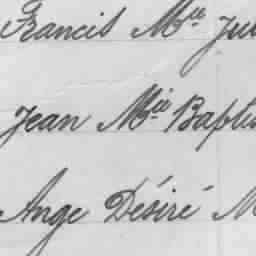 Francis Mie Jul
Jean Mie Baptis
Ange Désiré M